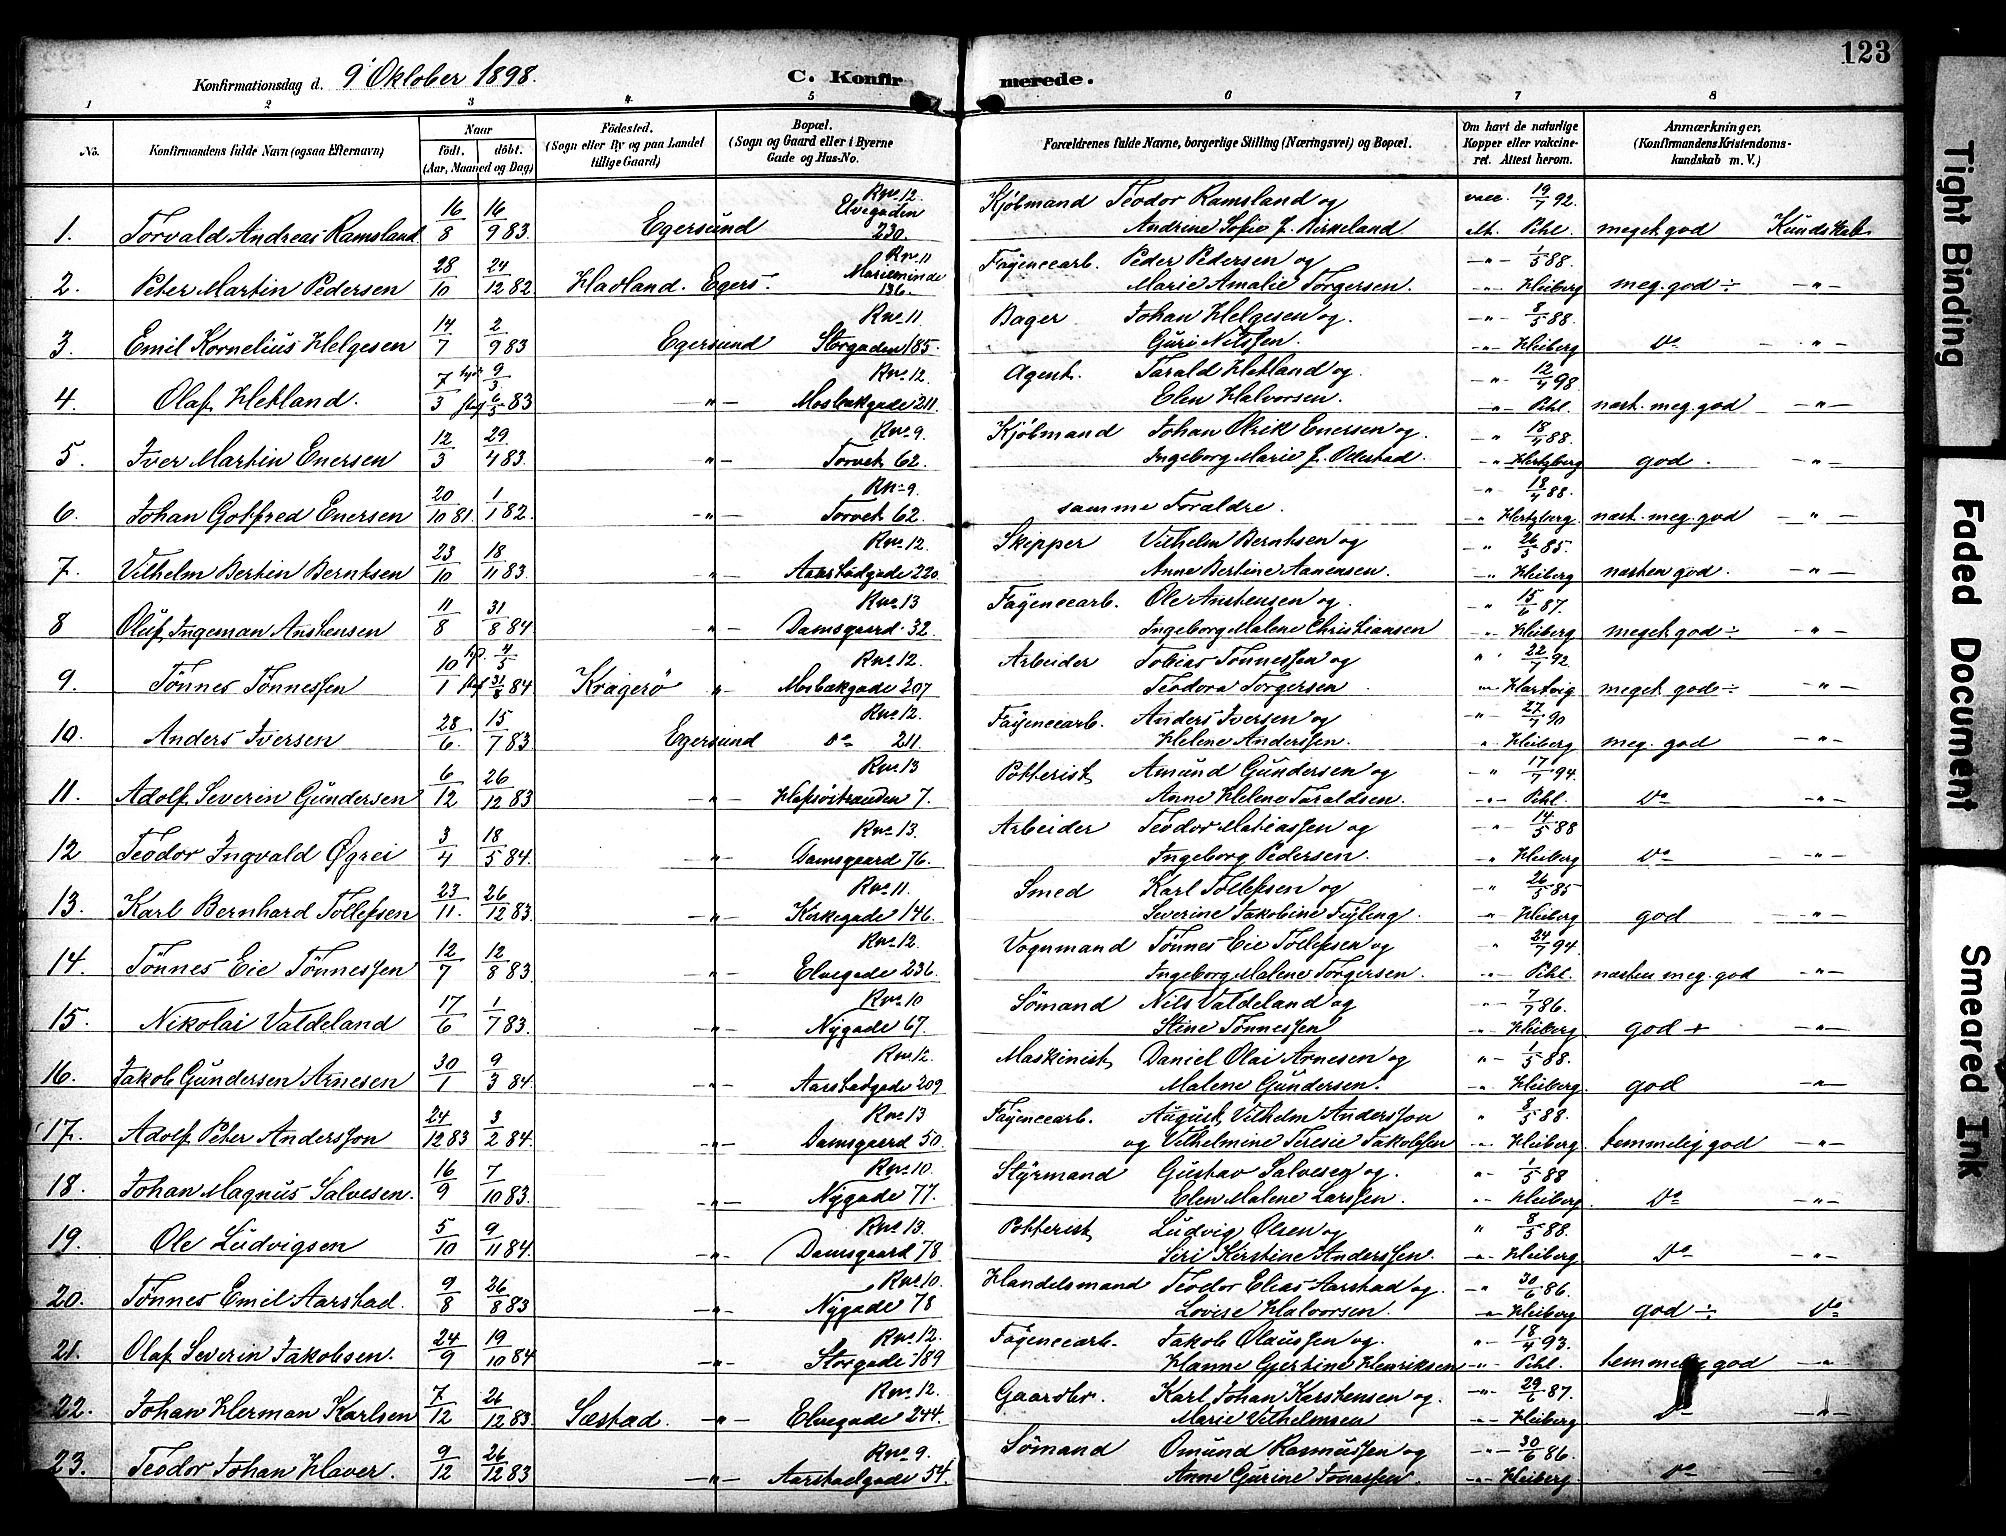 123
Konfirmationsdag d. 9' Oktober 1898.
C. Konfirmerede.
1 2 3 4 5 6 7 8
No. Konfirmandens fulde Navn (ogsaa Efternavn)
Naar født. døbt. (Aar, Maaned og Dag)
Fødested. (Sogn eller By og paa Landet tillige Gaard)
Bopæl. (Sogn og Gaard eller i Byerne Gade og Hus-No.
Forældrenes fulde Navne, borgerlige Stilling (Næringsvei) og Bopæl.
Om havt de naturlige Kopper eller vakcineret. Attest herom.
Anmærkninger, (Konfirmandens Kristendomskundskab m. V.)
Rno 12. Kjøbmand Teodor Ramsland og vacc. 19/7 92.
1. Torvald Andreas Ramsland 16/8 16/9 83. Egersund Elvegaden 230. Andrine Sofie J. Birkeland. att. Pihl. meget god Kundskab
Rno 11 Fayencearb. Peder Pedersen og -"- 1/5 88.
2. Peter Martin Pedersen 28/10 24/12 82. Hadland. Egers. Marieminde 136. Marie Amalie Torgersen. -"- Heiberg meg. god ÷ -"-
Rno 11 Bager Johan Helgesen og -"- 8/5 88.
3. Emil Kornelius Helgesen 14/7 2/9 83 Egersund Storgaden 185. Guri Nilssen. -"- Heiberg do "-
Rno 12. Agent. Tarald Hetland og -"- 12/4 98.
4. Olaf Hetland. 7/3 9/3 6/5 83 -"- Mosbækgade 211. Elen Halvorsen. -"- Pihl. næst. meg. god -"-
Rno 9. Kjøbmand Johan Olrik Enersen og. -" 18/4 88.
5. Iver Martin Enersen 12/3 29/4 83. "- Torvet 62. Ingeborg Marie J. -" Hertzberg god. -"-
Rno 9. -" 18/4 88.
6. Johan Gotfred Enersen 20/10 81. 1/1 82. -"- Torvet 62. samme Forældre. -" Hertzberg. næst. meg. god -"-
Rno 12. Skipper Vilhelm Berntsen og -" 26/5 85.
7. Vilhelm Bertin Berntsen 23/10 18/11 83. "- Aarstadgade 220. Anne Bertine Aanensen. -" Heiberg næsten god. -"-
Rno 13 Fayencearb. Ole Anstensen og " 15/6 87.
8 Oluf Ingeman Anstensen 11/8 31/8 84 "- Damsgaard 32. Ingeborg Malene Christiansen -"- Heiberg meget god ÷ -"-
Rno 12. Arbeider Tobias Tønnessen og " 22/7 92.
9. Tønnes Tønnessen 10/1 4/5 31/8 84 Kragerø " Mosbækgade 207 Teodora Torgersen -"- Hartvig meget god ÷ -"-
Rno 12. Fayencearb. Anders Iversen og -"- 27/7 90
10. Anders Iversen 28/6. 15/7 83 Egersund do 211. Helene Anderssen. " Heiberg meg. god -"-
Rno 13 Potterist Amund Gundersen og -" 17/7 94.
11. Adolf Severin Gundersen 6/12 26/12 83 -"- Hafsøstranden 7. Anne Helene Taraldsen. -"- Pihl. do -"-
Rno 13. Arbeider Teodor Matiassen og -"- 14/5 88
12 Teodor Ingvald Øgrei 3/4 18/5 84. -"- Damsgaard 76. Ingeborg Pedersen. " Heiberg do -"-
Rno 11. Smed Karl Tollefsen og -" 26/5 85
13. Karl Bernhard Tollefsen 23/11. 26/12 83. -"- Kirkegade 146. Severine Jakobine Fuyling. " Heiberg god -"-
Rno 12. Vognmand Tønnes Eie Tollefsen og " 24/7 94.
14. Tønnes Eie Tønnessen 12/7 12/8 83 -"- Elvegade 236. Ingeborg Malene Torgersen. -"- Pihl. næsten meg. god -"-
Rno 10 Sømand Nils Valdeland og -"- 7/7 86.
15. Nikolai Valdeland 17/6 1/7 83. -"- Nygade 67. Stine Tønnessen -"- Heiberg god + -"-
Rno 12. Maskinist Daniel Olai Arnesen og "- 1/5 88.
16. Jakob Gundersen Arnesen 30/1 9/3 84. -"- Aarstadgade 209 Malene Gundersen. -" Heiberg. god -"-
Rno 13 Fayencearb. August Vilhelm Andersson " 8/5 88.
17. Adolf Peter Andersson 24/12 83 3/2 84. -"- Damsgaard 50. og Vilhelmine Teresie Jakobssen -"- Heiberg. temmelig god -"-
Rno 10. Styrmand Gustav Salvesen og. "- 1/5 88
18. Johan Magnus Salvesen. 16/9 7/10 83. -"- Nygade 77. Elen Malene Larssen. -"- Heiberg do -"-
Rno 13. Potterist Ludvig Olsen og " 8/5 88.
19. Ole Ludvigsen 5/10 9/11 84. -"- Damsgaard 78 Siri Kirstine Anderssen. -"- Heiberg do -"-
Rno 10. Handelsmand Teodor Elias Aarstad og. -" 30/6 86.
20. Tønnes Emil Aarstad. 9/8 26/8 83 -"- Nygade 78 Lovise Halvorsen. -"- Heiberg god ÷ do
Rno 12. Fayencearb. Jakob Olaussen og. "- 18/4 93.
21. Olaf Severin Jakobsen. 24/9 19/10 84 -"- Storgade 189 Hanne Gjertine Henriksen -"- Pihl. temmelig god -"-
Rno 12. Gaardbr. Karl Johan Karstensen og. -"- 29/6 87.
22. Johan Herman Karlsen 7/12 26/12 83. Sæstad. -"- Elvegade 244. Marie Vilhelmsen -"- Heiberg. do -"-
Rno 9. Sømand Omund Rasmussen og -"- 30/6 86.
23. Teodor Johan Haver. 9/12 26/12 83 -"- Aarstadgade 54. Anne Gurine Jonassen. -"- Heiberg. do "
Tight Binding
Faded Document
Smeared Ink